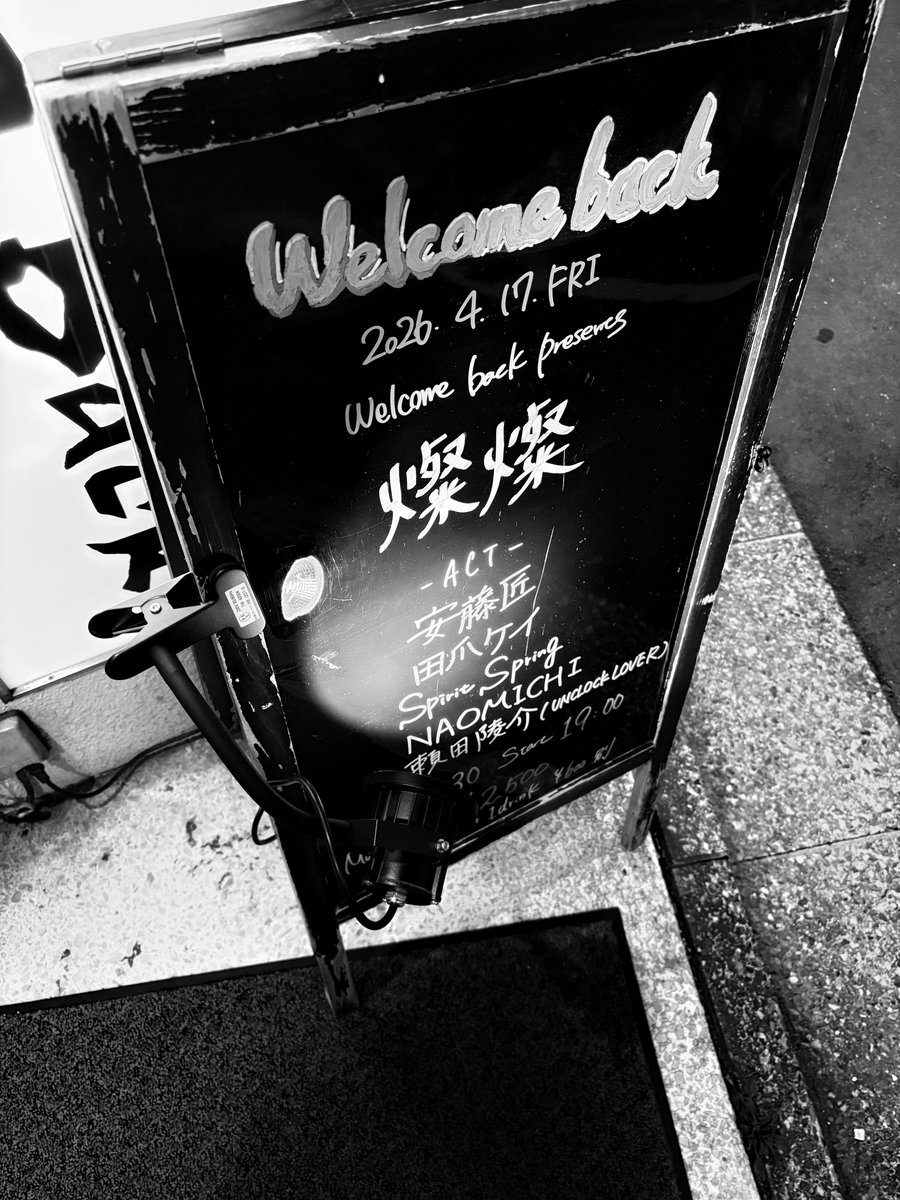 Welcome back
2026. 4. 17. FRI
Welcome back presents
燦燦
-ACT-
安藤匠
田爪ケイ
Spirit Spring
NAOMICHI
頼田陵介 (UNCLOCK LOVER)
30 Start 19:00
2,500
1drink ¥600 別